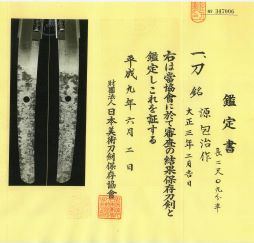 No 347006
鑑定書
一、刀 銘 源包治作
大正三年二月吉日
長二尺〇九分半
右は當協會に於て審査の結果保存刀剣と
鑑定しこれを証する
平成九年六月二日
財團法人日本美術刀剣保存協會